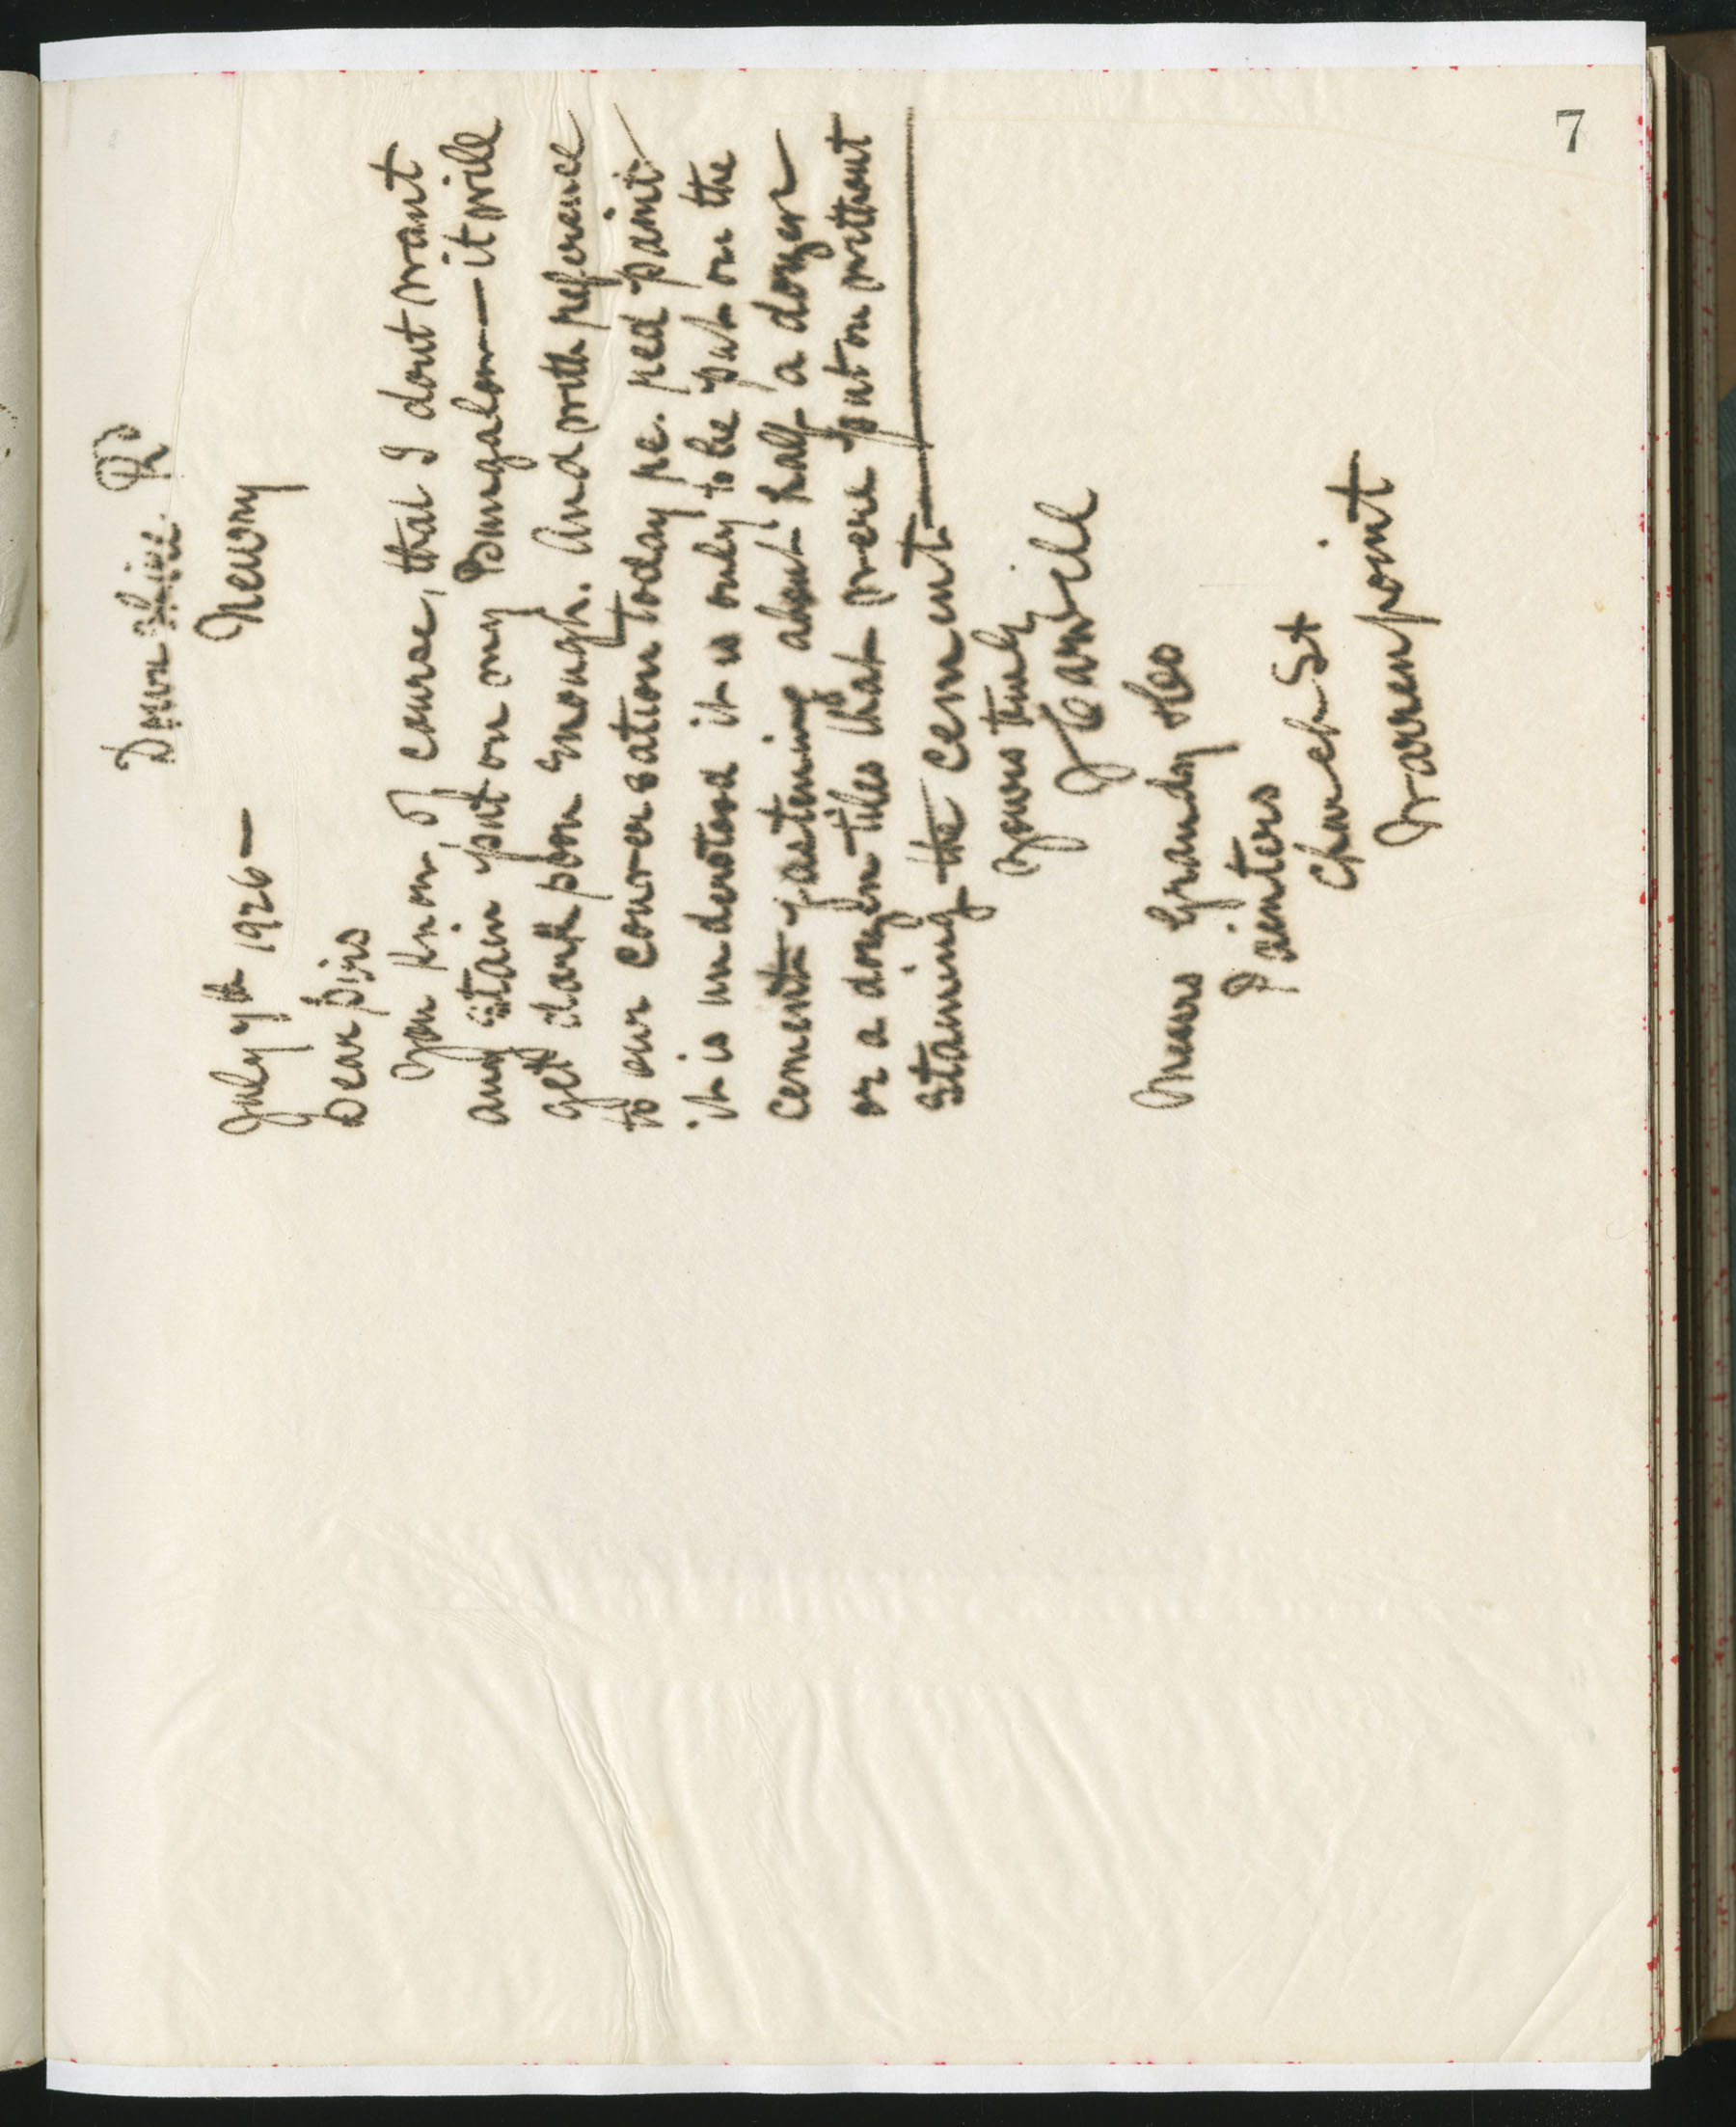 7
Downshire Rd
Newry
July 7th 1926 —
Dear Sirs
You know, of course, that I dont want
any stain put on my Bungalow — it will
get dark soon enough. And with reference
to our conversation today re. red paint
it is understood it is only to be put on the
cement fastening about half a dozen
or a dozen tiles that were put on without
staining the cement
Yours truly
Messrs Grandy & Co
Painters
Church St
Warrenpoint